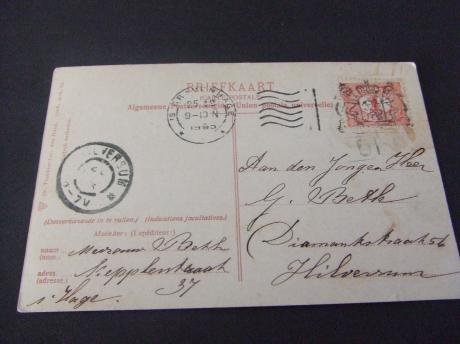 BRIEFKAART
(CARTE POSTALE)
Algemeene Postvereeniging (Union postale universelle)
'S-GRAVENHAGE
9-10 N
HILVERSUM
(Desverkiezende in te vullen.) (Indications facultatives.)
Afzender: (Expéditeur:)
naam Mevrouw Beth
(nom:)
adres
(adresse:) 37
s'Hage
Aan den Jongen Heer
G. Beth
Diamantstraat 56
Hilversum